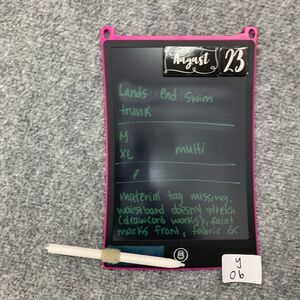 August 23
Lands End Swim
trunk
M
XL multi
P
material tag missing,
waistband doesn't stretch
(drawcord works), faint
marks front, fabric GC
y
06